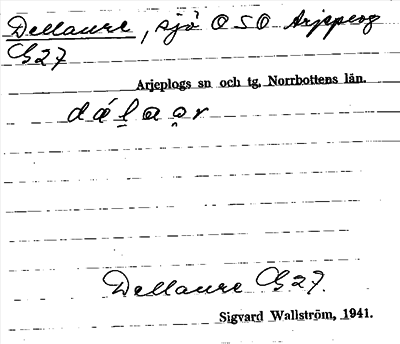 Dellaure, sjö OSO Arjeplog
G27
Arjeplogs sn och tg, Norrbottens län.
dáḻạọr
Dellaure G27.
Sigvard Wallström, 1941.